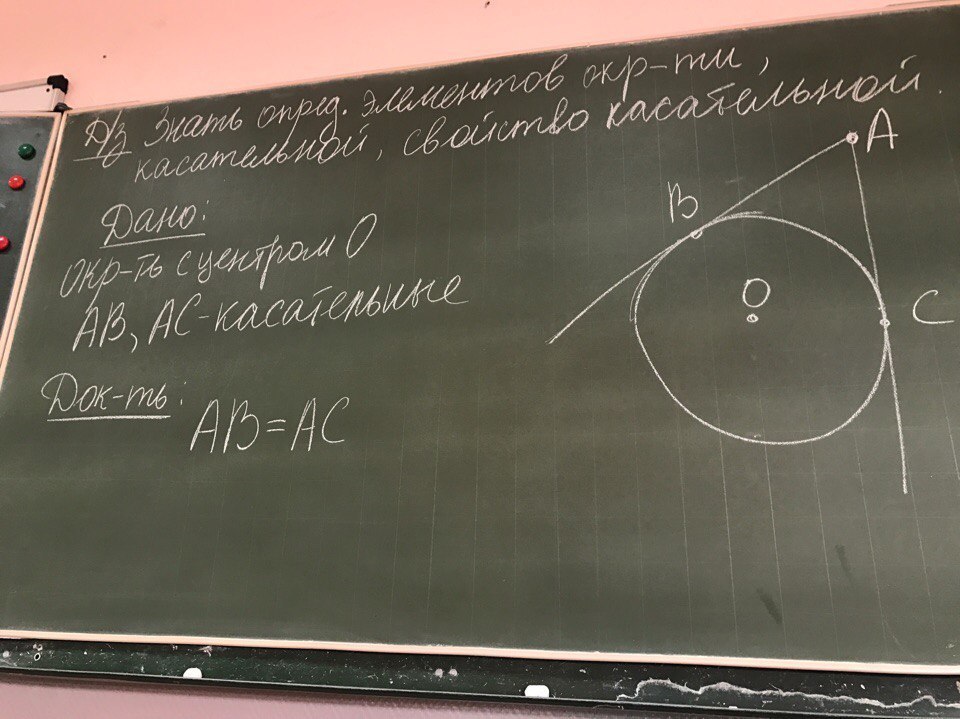 Д/з Знать опред. элементов окр-ти,
касательной, свойство касательной.
Дано:
Окр-ть с центром О
АВ, АС-касательные
Док-ть:
АВ=АС
А
В
О
С